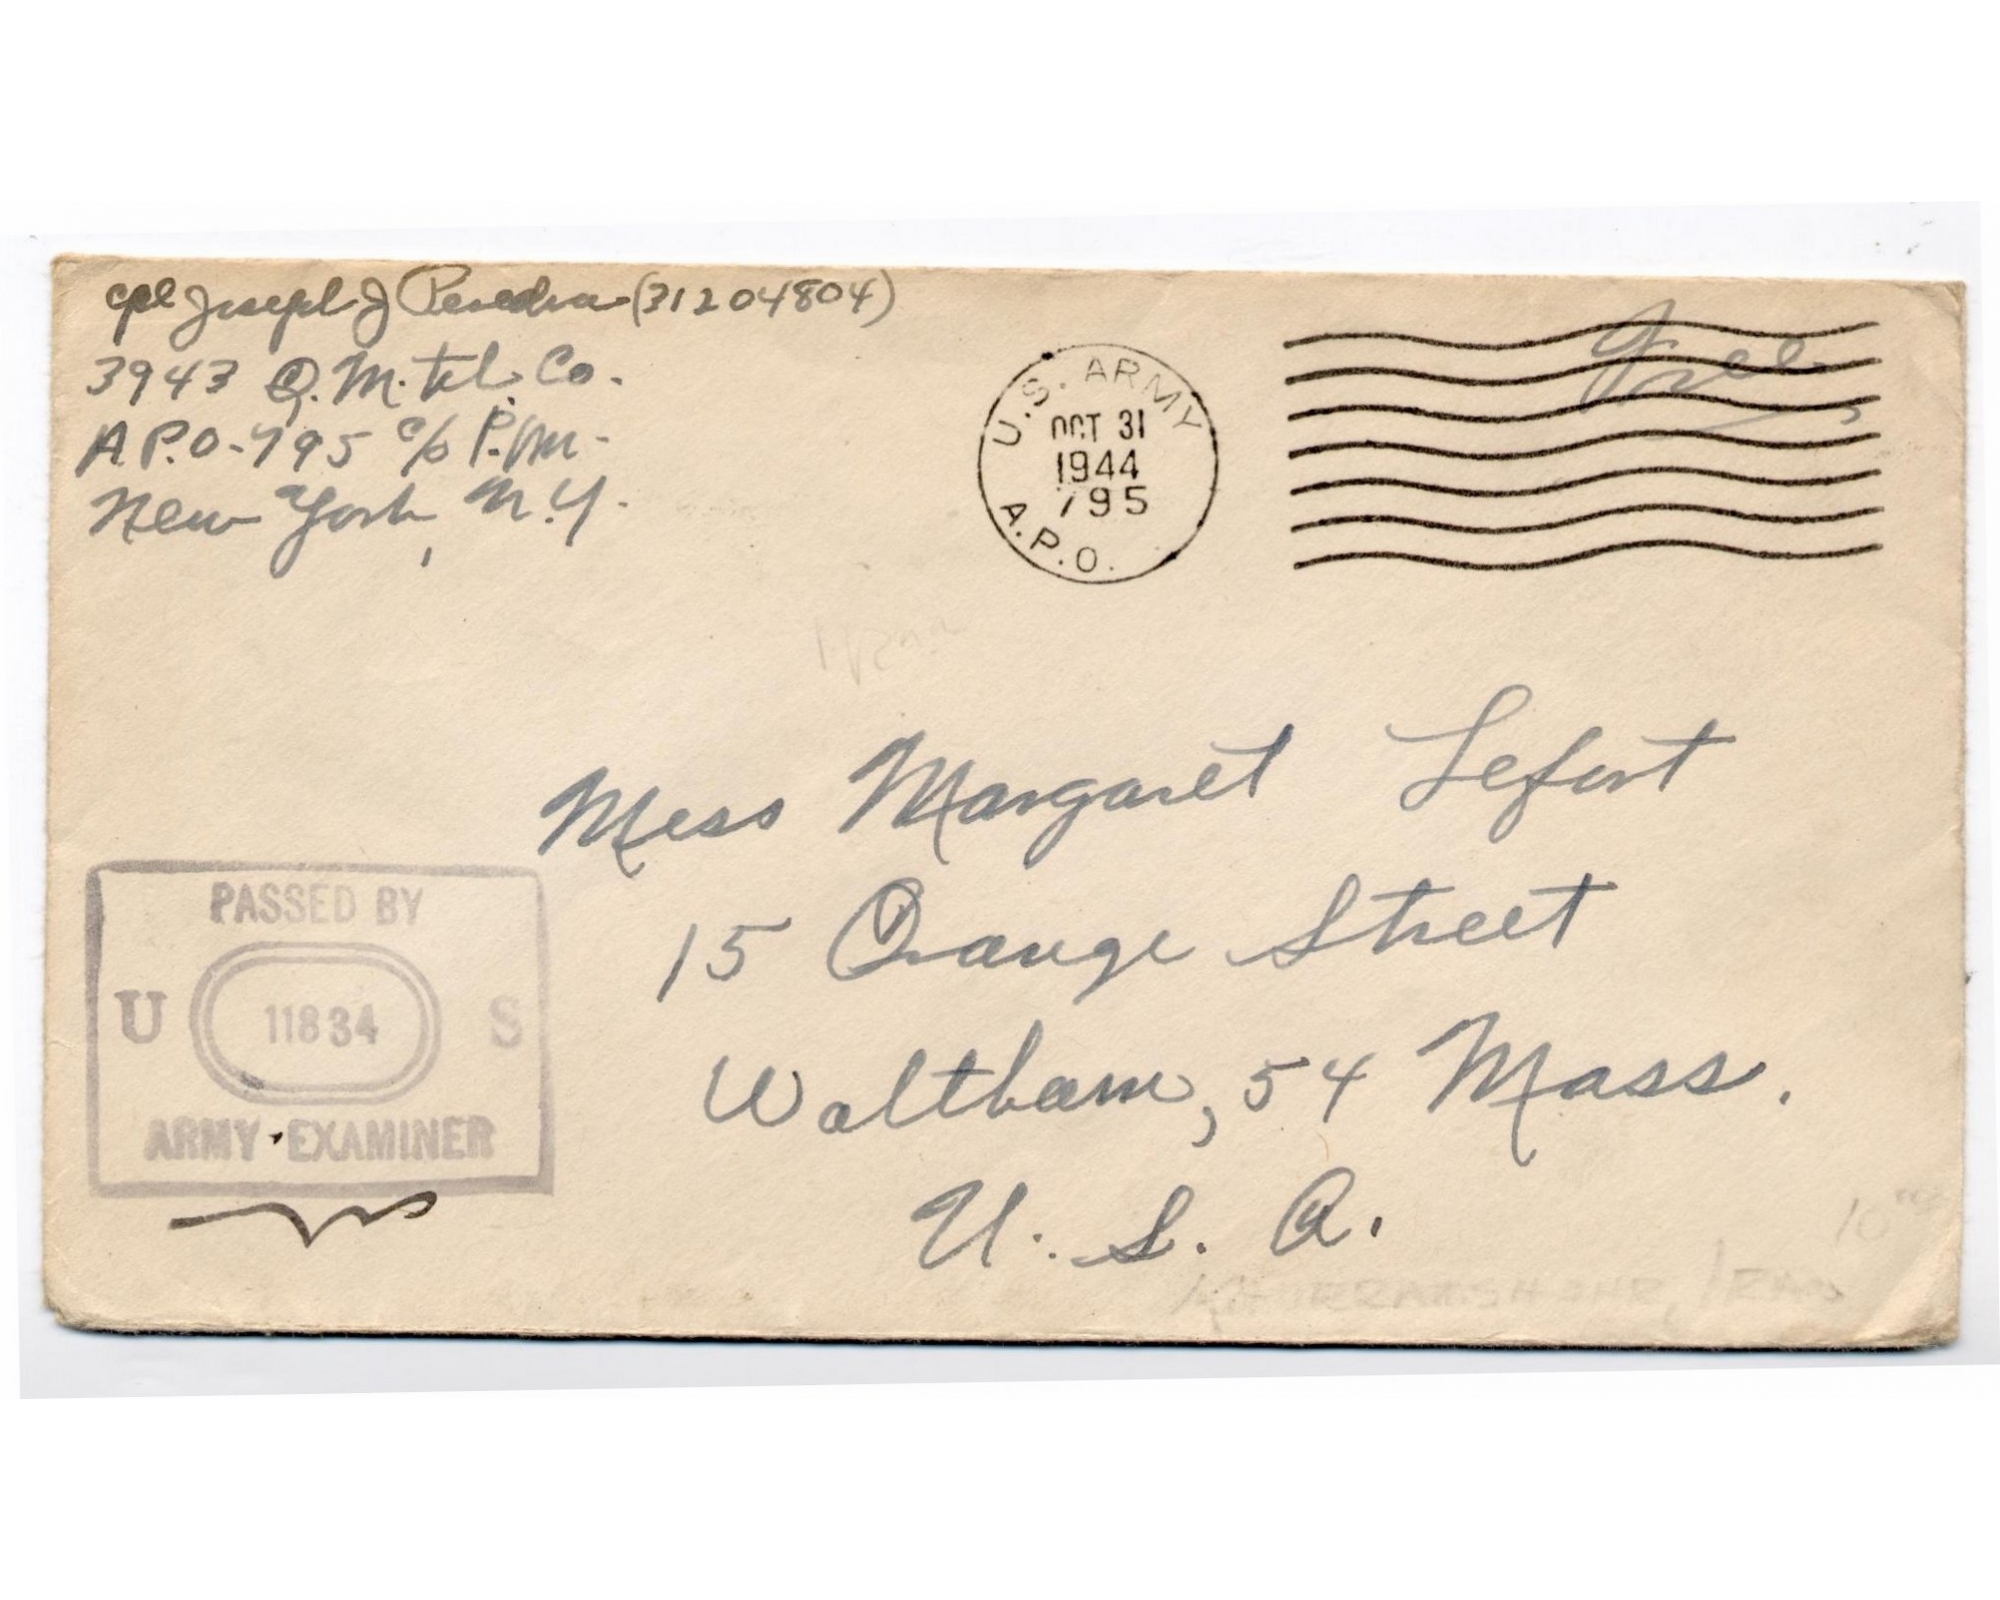 cpl Joseph J (31204804)
3943 Q.M. tel. Co.
A.P.O-795 c/o P.M.
New York, N.Y.
U.S. ARMY
OCT 31
1944
795
A.P.O.
Free
Miss Margaret Lefort
15 Orange Street
Waltham, 54 Mass.
U.S.A.
PASSED BY
U 11834 S
ARMY EXAMINER
KHORRAMSHAHR, IRAN